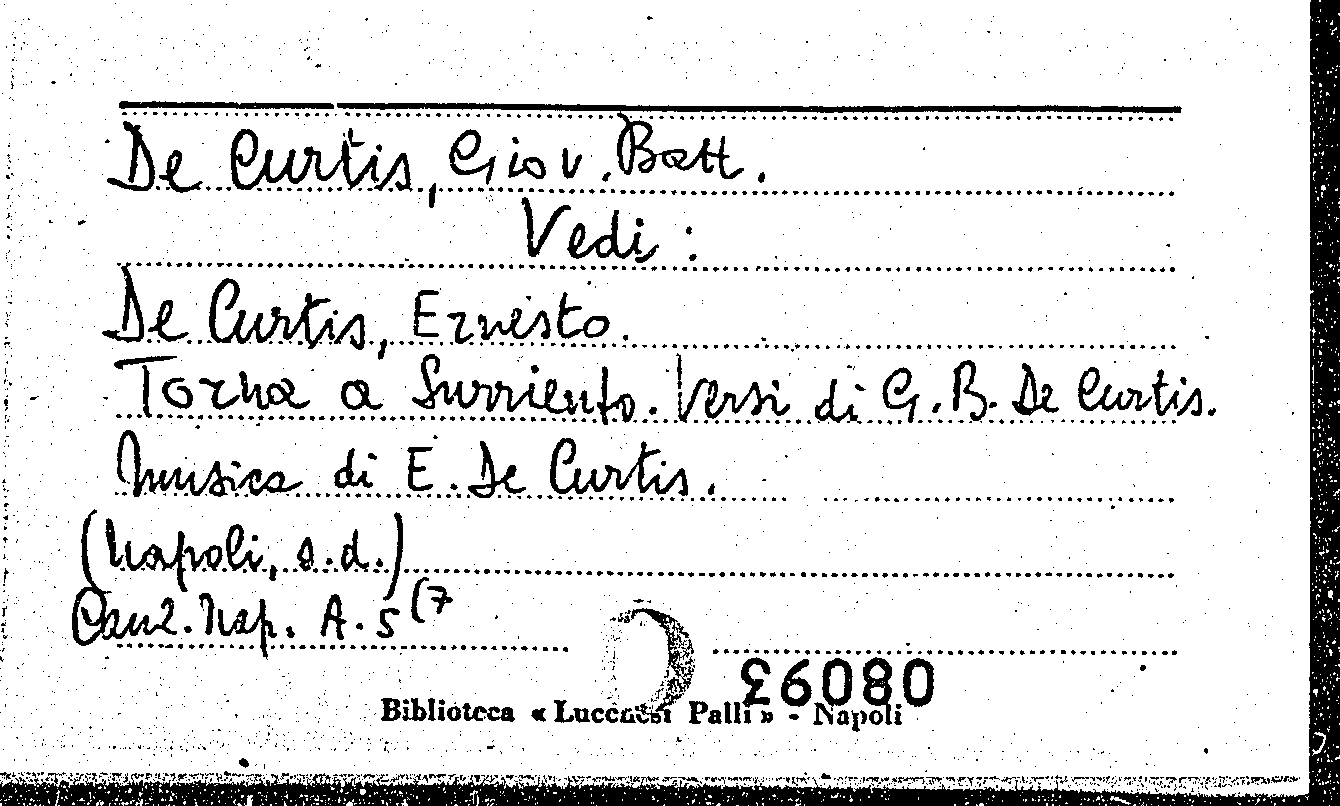 De Curtis, Giov. Batt.
Vedi :
De Curtis, Ernesto.
Torna a Surriento. Versi di G. B. De Curtis.
Musica di E. De Curtis.
(Napoli, s.d.)
Canz. Nap. A. 5 (7
£6080
Biblioteca « Lucchesi Palli » - Napoli